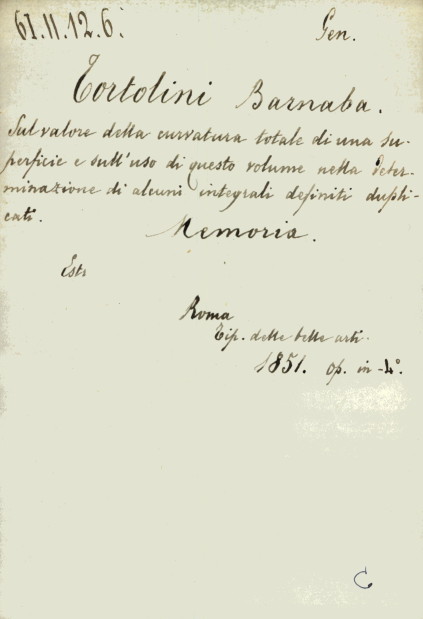 61.11.12.6.
Gen.
Tortolini Barnaba.
Sul valore della curvatura totale di una su-
perficie e sull'uso di questo volume nella deter-
minazione di alcuni integrali definiti dupli-
cati.
Memoria.
Estr
Roma
Tip. delle belle arti.
1851. op. in -4°.
C